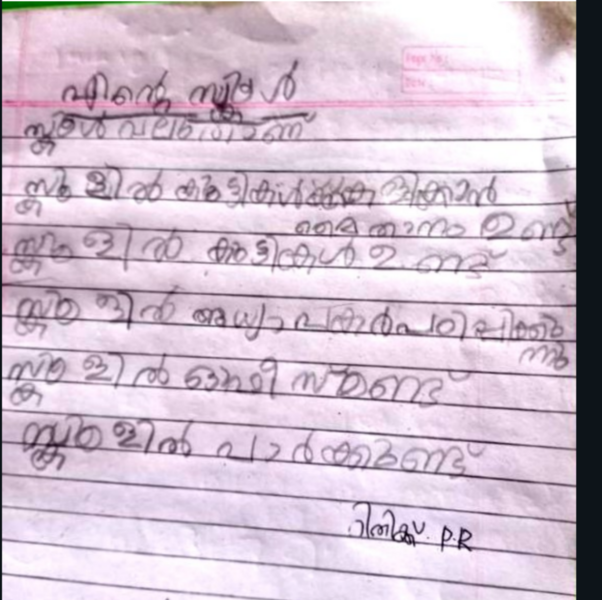 എന്റെ സ്കൂൾ
സ്കൂൾ വലുതാണ്
സ്കൂളിൽ കുട്ടികൾക്ക് കളിക്കാൻ
മൈതാനം ഉണ്ട്
സ്കൂളിൽ കുട്ടികൾ ഉണ്ട്
സ്കൂളിൽ അധ്യാപകർ പഠിപ്പിക്കു
ന്നു
സ്കൂളിൽ ഓഫീസുണ്ട്
സ്കൂളിൽ പാർക്കുണ്ട്
റിതിക്ക്. P.R